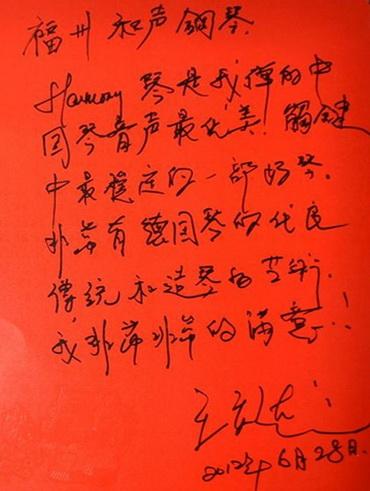 福州和声钢琴
Harmony 琴是我弹的中
国琴音声最优美. 触键
中最稳定的一部好琴.
非常有德国琴的优良
傳統和造琴的艺術.
我非常非常的满意!
2012年6月28日.